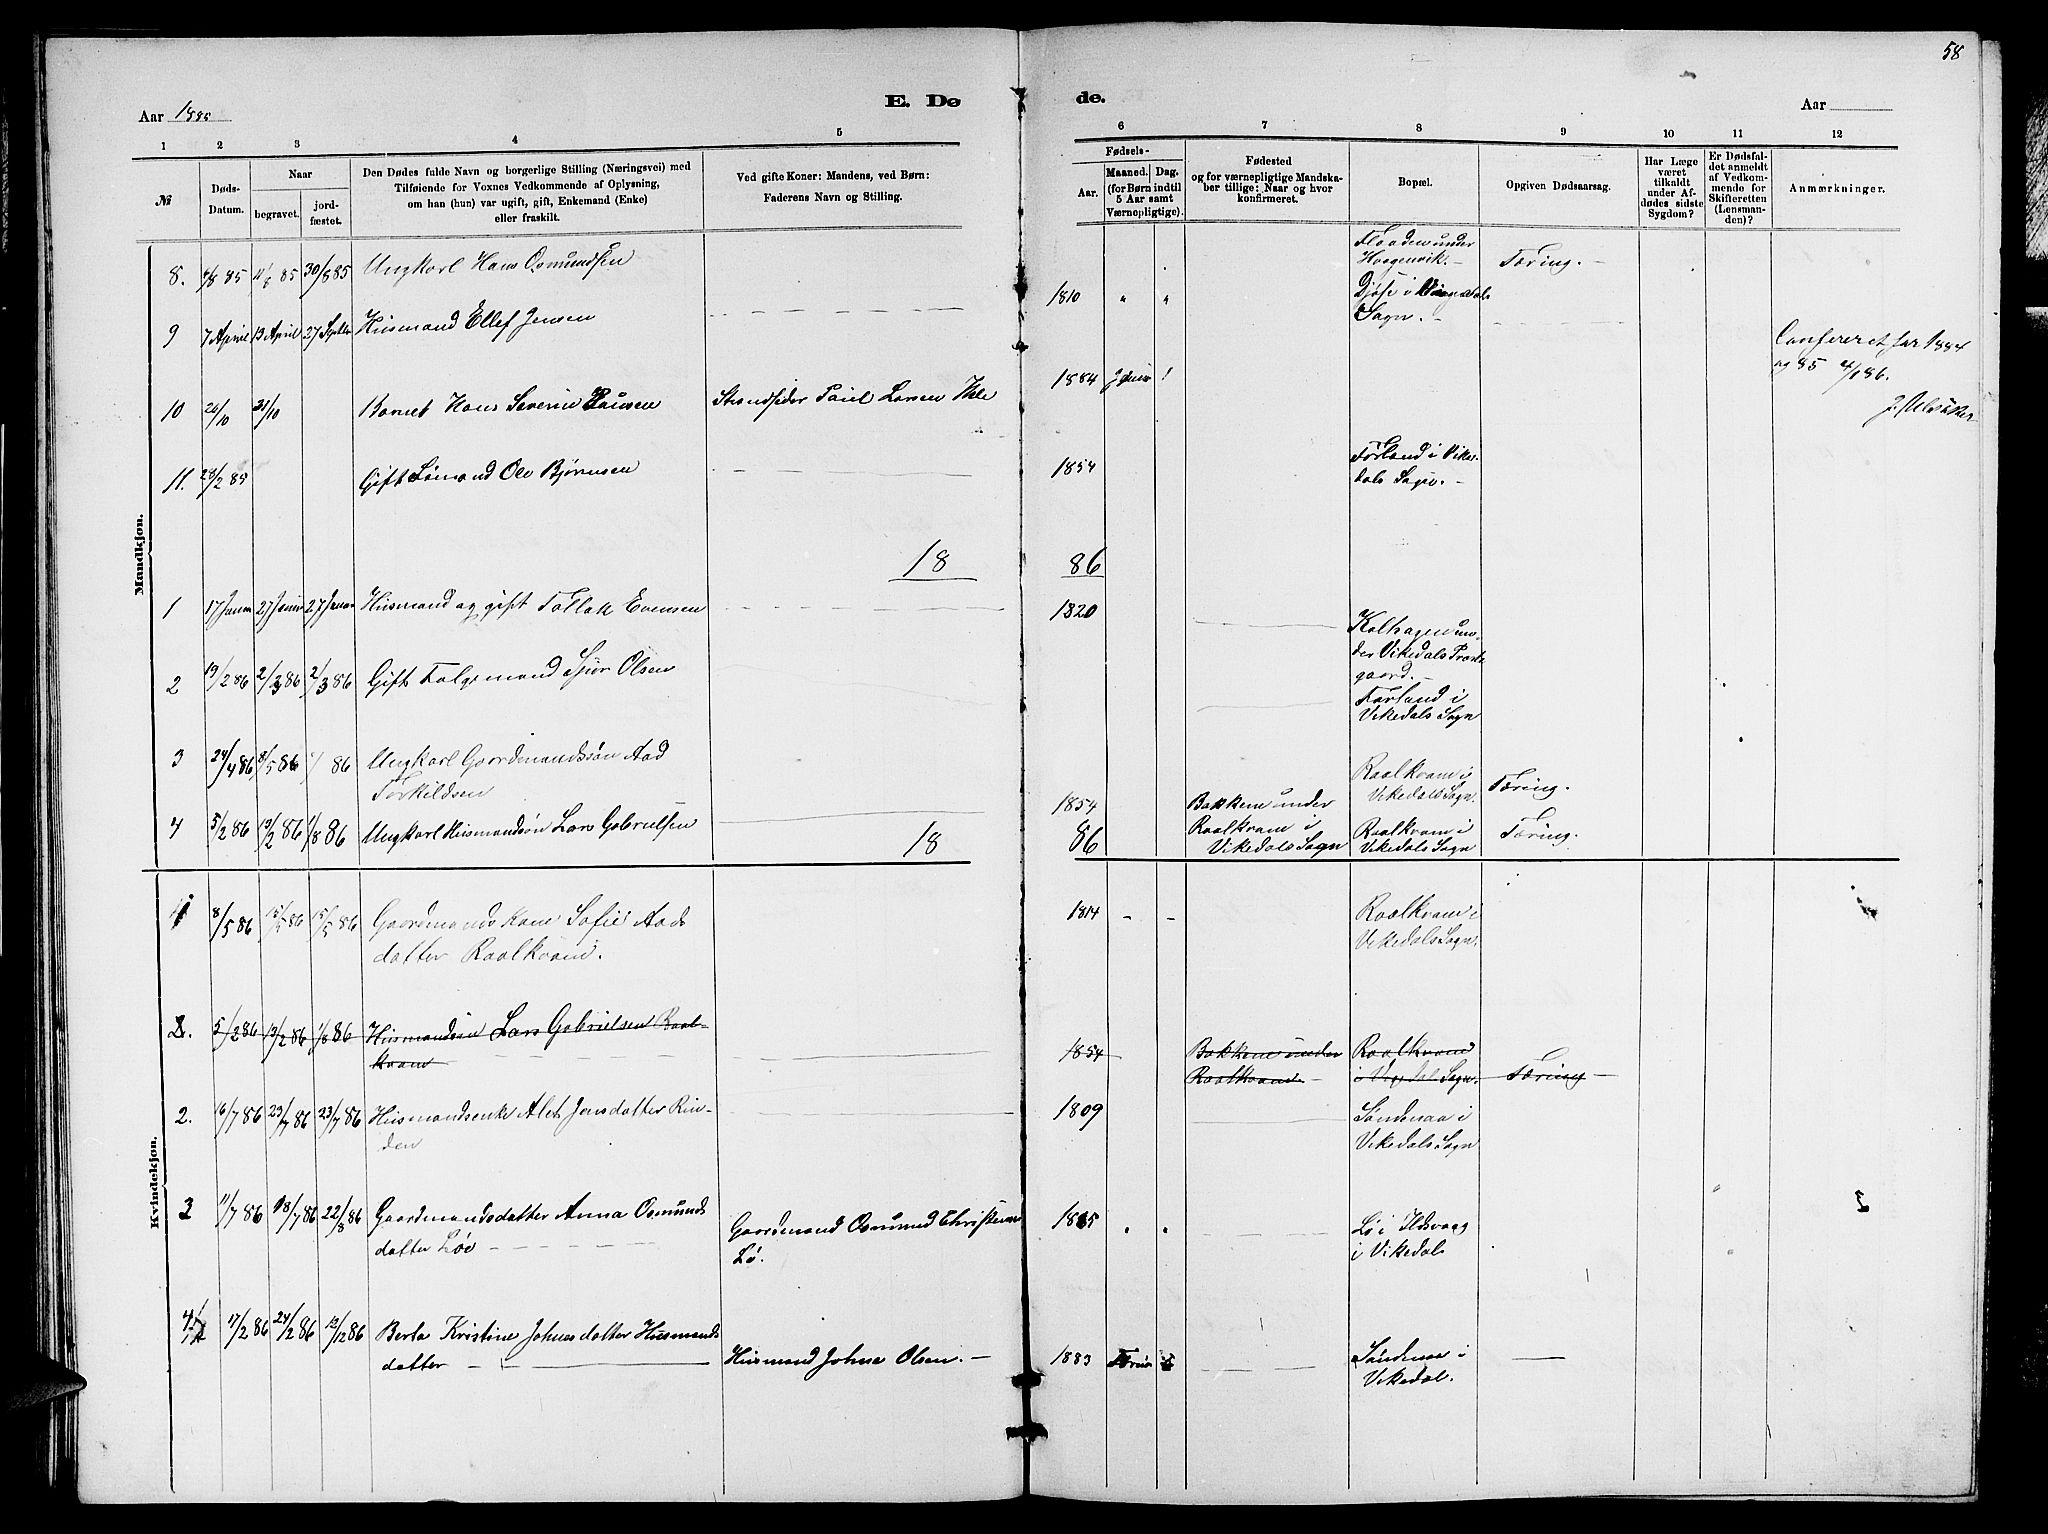 58
Aar 1885
E. Dø
de.
Aar
1 2 3 4 5 6 7 8 9 10 11 12
№
Døds-
Datum.
Naar
begravet.
jord-
fæstet.
Den Dødes fulde Navn og borgerlige Stilling (Næringsvei) med
Tilføiende for Voxnes Vedkommende af Oplysning,
om han (hun) var ugift, gift, Enkemand (Enke)
eller fraskilt.
Ved gifte Koner: Mandens, ved Børn:
Faderens Navn og Stilling.
Fødsels-
Aar.
Maaned. Dag.
(for Børn indtil
5 Aar samt
Værnepligtige).
Fødested
og for værnepligtige Mandska-
ber tillige: Naar og hvor
konfirmeret.
Bopæl.
Opgiven Dødsaarsag.
Har Læge
været
tilkaldt
under Af-
dødes sidste
Sygdom?
Er Dødsfal-
det anmeldt
af Vedkom-
mende for
Skifteretten
(Lensman-
den)?
Anmærkninger.
Mandkjøn.
8. 4/8 85 11/8 85 30/8 85 Ungkarl Hans Osmundsen
Floaden under
Haagenvik.- Tæring.-
9 7 April 13 April 27 Septbr Husmand Ellef Jensen
1810 " "
Djøse i
Sogn.-
Confereret for 1884
og 85 4/1 86.
10 26/10 31/10 Barnet Hans Severin Paulsen
Strandsider Paul Larsen
1884
11. 28/2 85 Gift Lømand Ole Bjørnsen
1854
Førland i Vike-
dals Sogn.-
18 86
1 17 Januar 27 Januar 27 Januar Husmand og gift Tollak Evensen
1820
Kolhagen un-
der Vikedals Præste
gaard.-
2 19/2 86 2/3 86 2/3 86 Gift Folgemand Sjur Olsen
Førland i
Vikedals Sogn
3 24/4 86 8/5 86 / 86 Ungkarl Gaardmandssøn Aad
Torkildsen
Raalkvam i
Vikedals Sogn. Tæring.
4 5/2 86 13/2 86 1/8 86 Ungkarl Husmandsøn Lars Gabrielsen
1854
Bakkene under
Raalkvam i
Vikedals Sogn
Raalkvam i
Vikedals Sogn
Tæring.
18 86
Kvindekjøn.
1 8/5 86 15/5 86 15/5 86 Gaardmands Kone Sofie Aads
datter Raalkvam.
1814 - -
Raalkvam i
Vikedals Sogn.
2. 5/2 86 13/2 86 1/8 86 Husmandsøn Lars Gabrielsen Raal-
kvam
1854
Bakkene under
Raalkvam -
Raalkvam
i Vikedal Sogn. Tæring -
2. 16/7 86 23/7 86 23/7 86 Husmandsenke Alet Jensdatter Rin-
den
1809
Søndenaa i
Vikedals Sogn
3 11/7 86 18/7 86 22/8 86 Gaardmandsdatter Anna Osmunds
datter Løe
Gaardmand Osmund Christensen
Lø.
1865 " "
Lø i Ilsvaag
i Vikedals
4 17/2 86 24/2 86 12/12 86 Berta Kristine Johnsdatter Husmands
datter
Husmand Johne Olsen.-
1883
Søndenaa i
Vikedal.